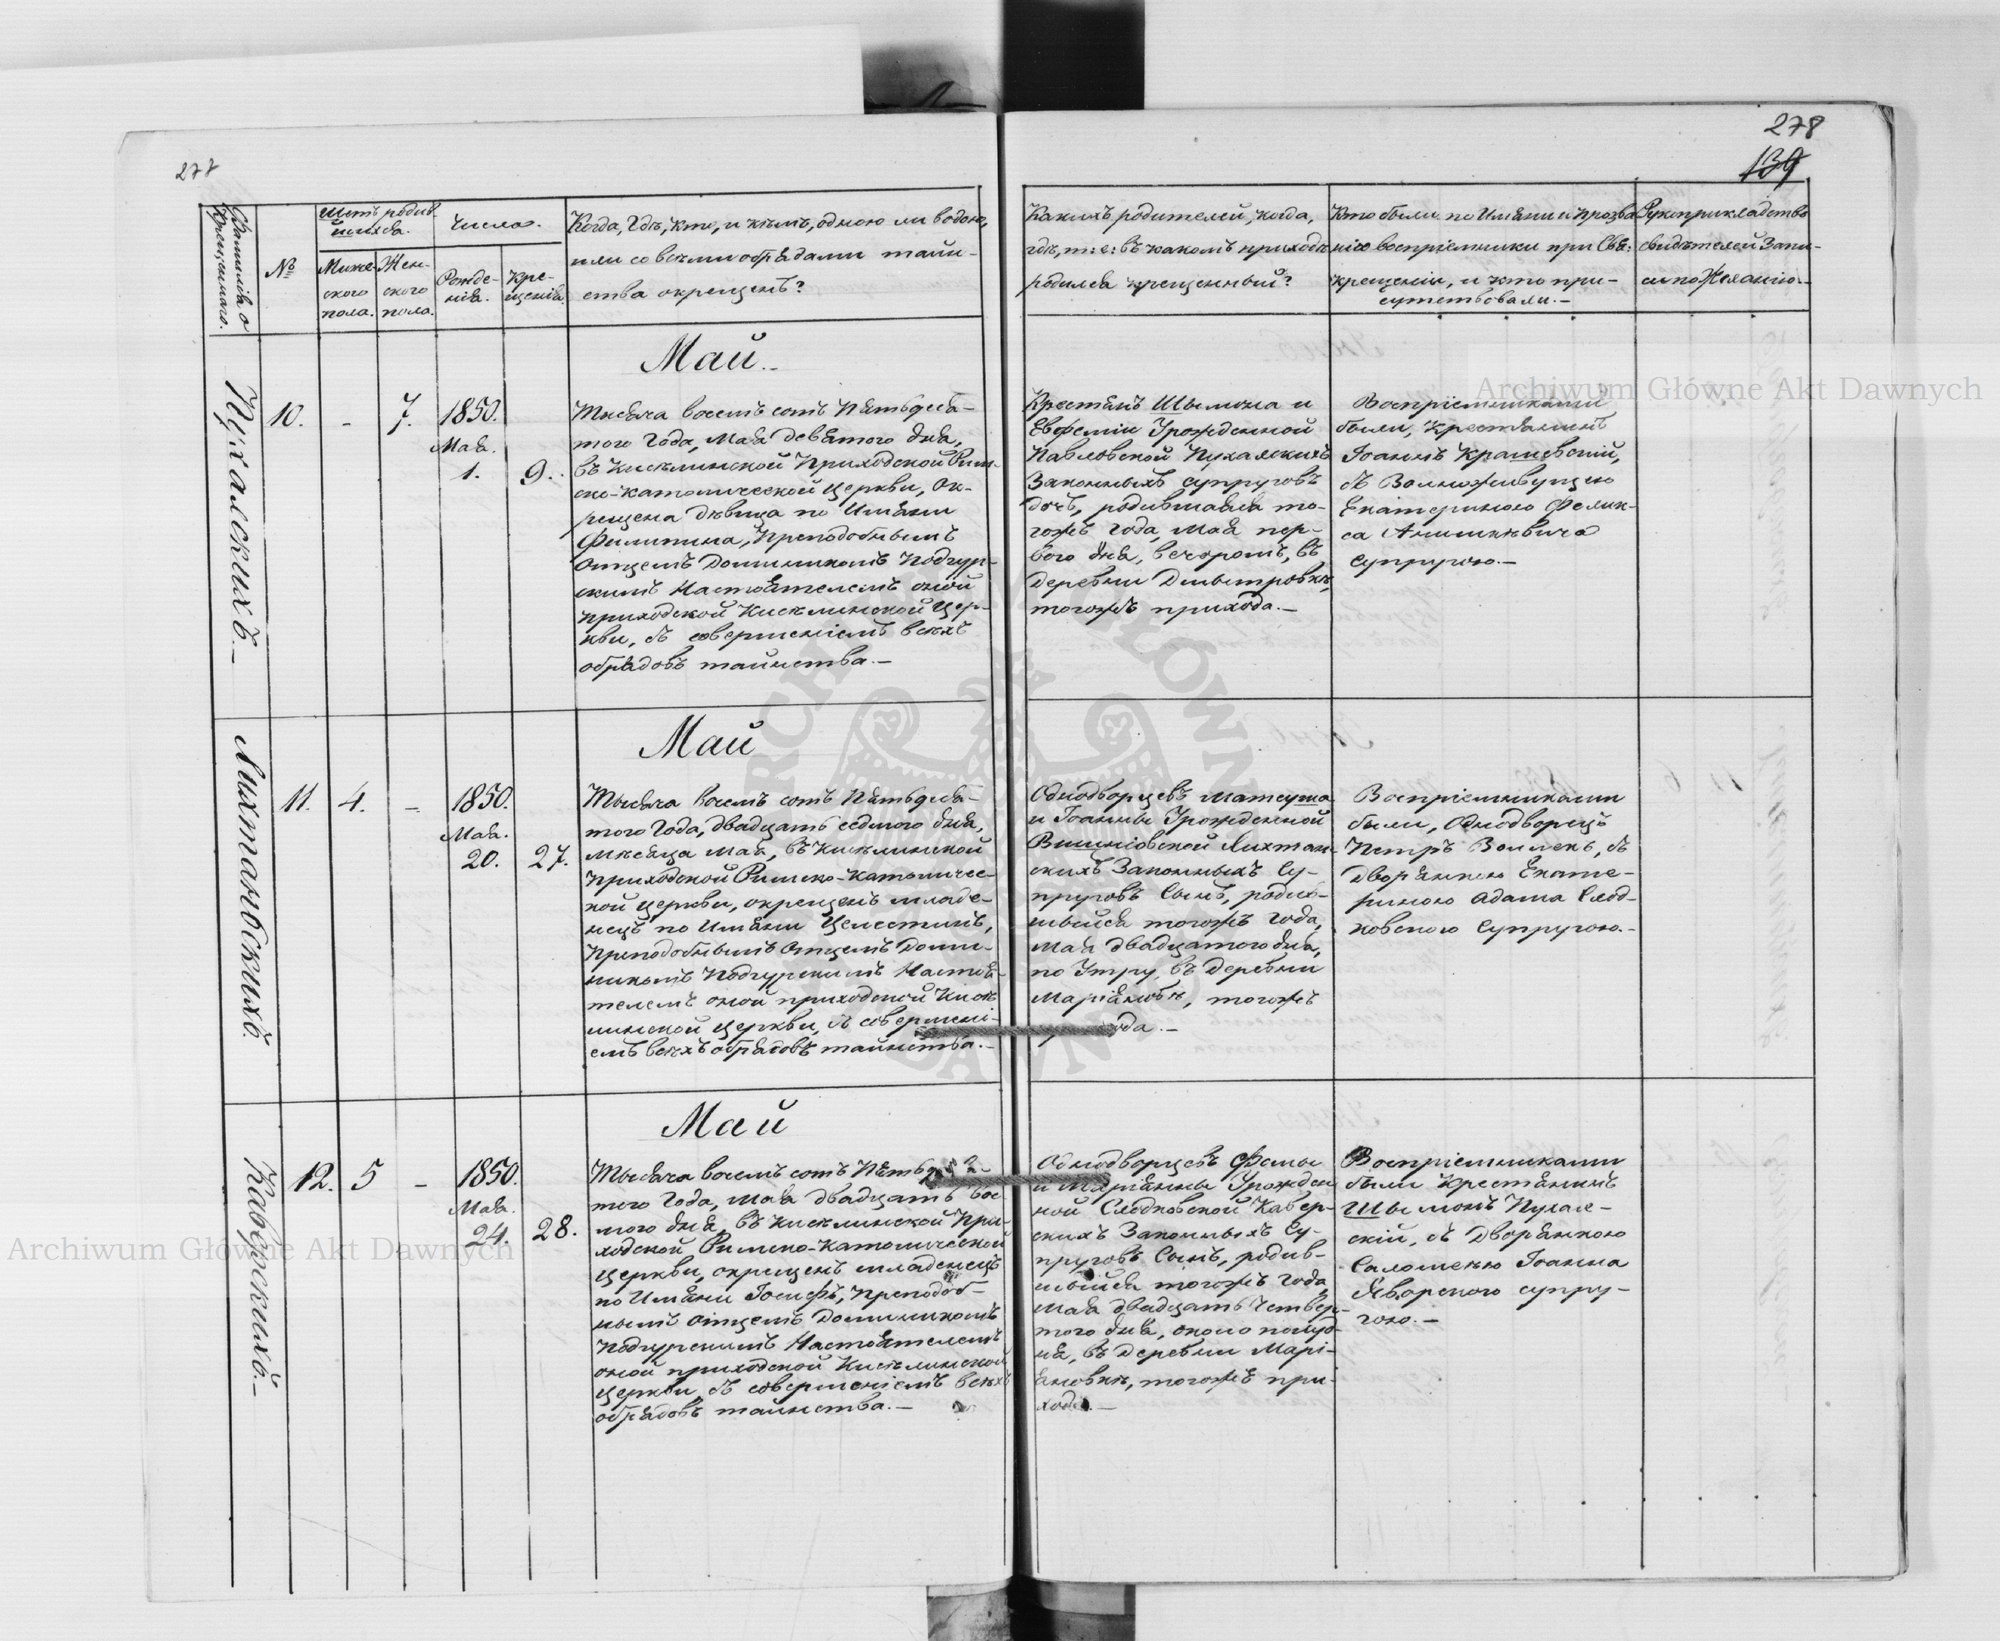 277
278
139
Фамилія о
Крещаемаго.
№
Щетъ родив-
шихся.
Муже-
ского
пола.
Жен-
ского
пола.
Числа.
Рожде-
нія.
Кре-
щенія.
Когда, Гдѣ, Кто, и кѣмъ, одною ли водою,
или со всѣми обрядами таин-
ства окрещенъ?
Какихъ родителей, когда,
гдѣ, т: е: въ какомъ приходѣ
родился крещенный?
Кто были по Имяни и прозва
нію воспріемники при Свя:
крещеніи, и кто при-
сутствовали.-
Рукоприкладство
свидѣтелей Запи-
си по Желанію.-
Archiwum Główne Akt Dawnych
Май.
Пухалскихъ.-
10.
-
7.
1850.
Мая.
1.
9.
Тысяча восемъ сотъ Пятьдеся-
того Года, Мая девятого дня,
въ Киселинской Приходской Рим-
ско-католической Церкви, Ок-
рещена дѣвица по Имяни
Филипина, Преподобнымъ
Отцемъ Доминикомъ Подгур-
скимъ Настоятелемъ оной
приходской Киселинской Цер-
кви, съ совершеніемъ всѣхъ
обрядовъ таинства.-
Крестянъ Шымона и
Евфеміи Урожденной
Павловской Пухалскихъ
Законныхъ супруговъ
дочь, родившаяся то-
гожъ Года, Мая пер-
вого дня, вечеромъ, въ
Деревни Дмытровкѣ,
тогожъ прихода.-
Воспріемниками
были, Крестьянинъ
Іоаннъ Крашевскій,
съ Волноживущею
Екатериною Фелик-
са Анишкевича
супругою.-
Май
Лихтанскихъ
11.
4.
-
1850.
Мая.
20.
27.
Тысяча восемъ сотъ Пятьдеся-
того Года, двадцать седмого дня,
мѣсяца Мая, въ Киселинской
Приходской Римско-католичес-
кой церкви, окрещенъ младе-
нецъ по Имяни Целестинъ,
Преподобнымъ Отцемъ Доми-
никомъ Подгурскимъ Настоя-
телемъ оной приходской Кисѣ
линской Церкви, съ совершені-
емъ всѣхъ обрядовъ таинства.-
Однодворцевъ Матеуша
и Іоанны Урожденной
Вишніовской Лихтан-
скихъ Законныхъ Су-
пруговъ Сынъ, родив-
шыйся тогожъ Года,
Мая двадцатого дня,
по Утру, въ Деревни
Маріяновкѣ, тогожъ
хода.-
Воспріемниками
были, Однодворецъ
Петръ Воллекъ, съ
дворянкою Екате-
риною Адама Слод-
ковского Супругою.-
Май
Каверскихъ.-
12.
5
-
1850.
Мая.
24.
28.
Тысяча восемъ сотъ Пятьдеся-
того Года, Мая двадцать вос
мого дня, въ Киселинской При-
ходской Римско-Католической
Церкви, окрещенъ младенецъ
по Имяни Іосифъ, Преподоб-
нымъ Отцемъ Доминикомъ
Подгурскимъ Настоятелемъ
оной приходской Киселинской
Церкви, съ совершеніемъ всѣхъ
обрядовъ таинства.-
Однодворцевъ Фомы
и Маріянны Урожден
ной Слодковской Кавер-
скихъ Законныхъ Су-
пруговъ Сынъ, родив-
шыйся тогожъ Года,
Мая двадцать Четвер-
того дня, около полуд-
ня, въ Деревни Марі-
яновкѣ, тогожъ при-
хода.-
Воспріемниками
были Крестянинъ
Шымонъ Пухал-
скій, съ Дворянкою
Саломеею Іоанна
Яворского супру-
гою.-
Archiwum Główne Akt Dawnych